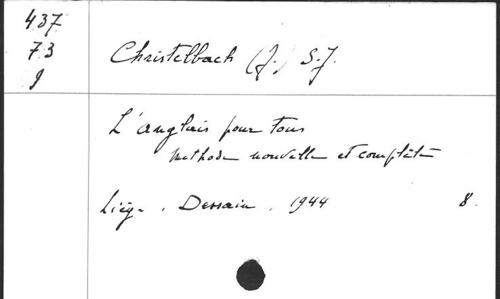 437
73
J
Christelbach (J.) S.J.
L'anglais pour tous
Methode nouvelle et complète
Liège. Dessain. 1944 8.